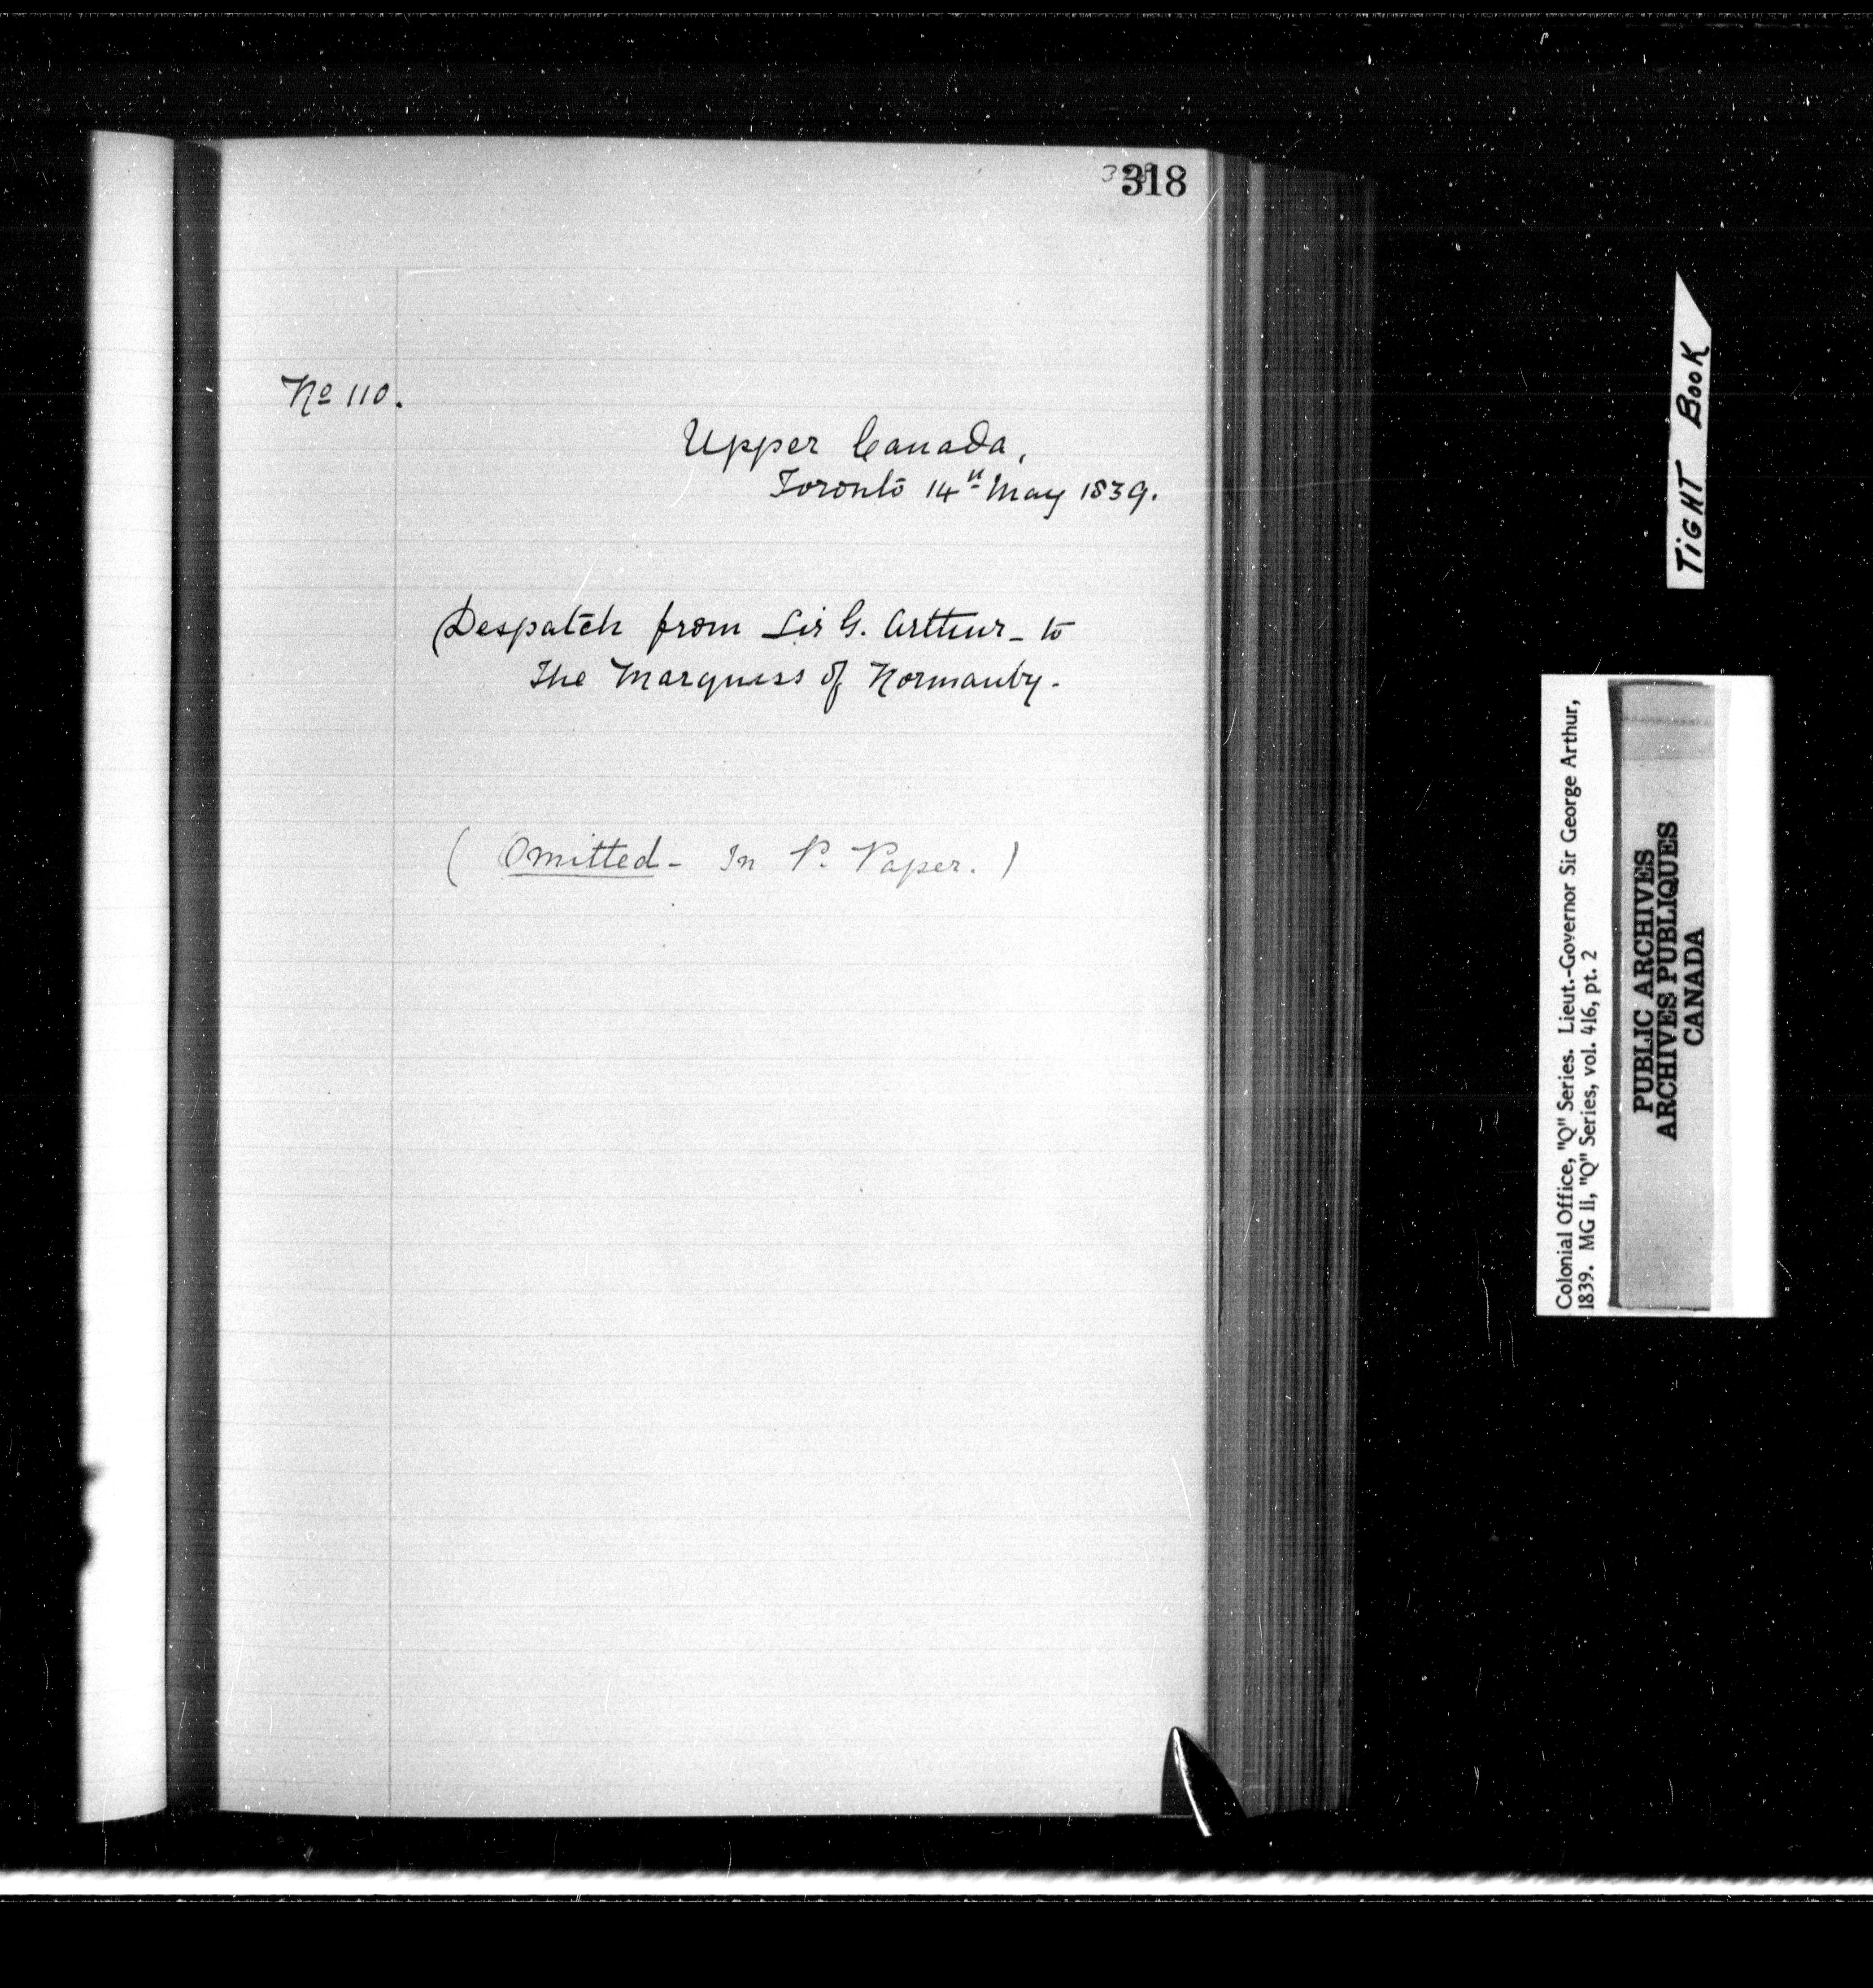 318
Nº 110.
Upper Canada,
Toronto 14th May 1839.
Despatch from Sir G. Arthur - to
The Marquess of Normanby.
( Omitted - In P. Paper. )
TIGHT BOOK
Colonial Office, "Q" Series. Lieut.-Governor Sir George Arthur,
1839. MG 11, "Q" Series, vol. 416, pt. 2
PUBLIC ARCHIVES
ARCHIVES PUBLIQUES
CANADA